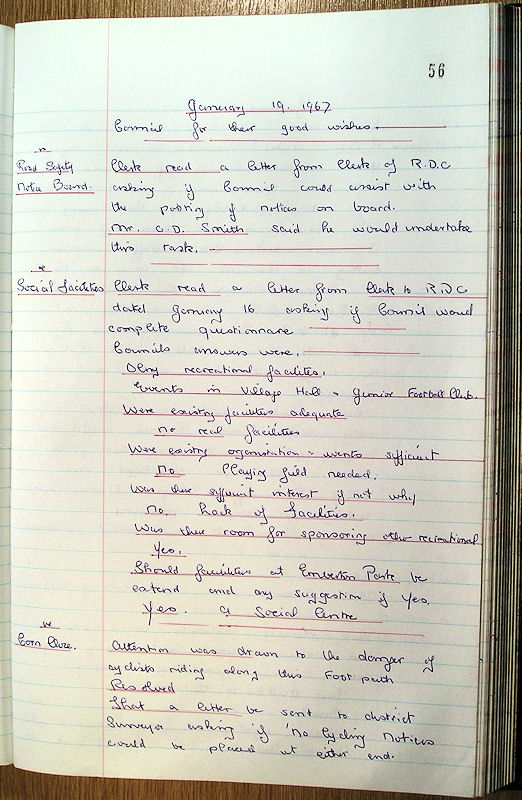 56
January 19. 1967
Council for their good wishes.
Road Safety
Notice Board.
Clerk read a letter from Clerk of R.D.C
asking if Council could assist with
the posting of notices on board.
Mr. C.D. Smith said he would undertake
this task.
Social facilities
Clerk read a letter from Clerk to R.D.C
dated January 16 asking if Council would
complete questionnare
Councils answers were.
recreational facilities.
Events in Village Hall - Junior Football Club.
Were existing facilities adequate
no real facilities
Were existing organisation + events sufficient
No Playing field needed.
Was there sufficient interest if not why
No. Lack of facilities.
Was there room for sponsoring other recreational
Yes.
Should facilities at Emberton Park be
extend and any suggestion if yes.
Yes. A Social Centre
Corn Close.
Attention was drawn to the danger of
cyclists riding along this Foot path
Resolved
That a letter be sent to district
Surveyor asking if 'no cycling notices
could be placed at either end.